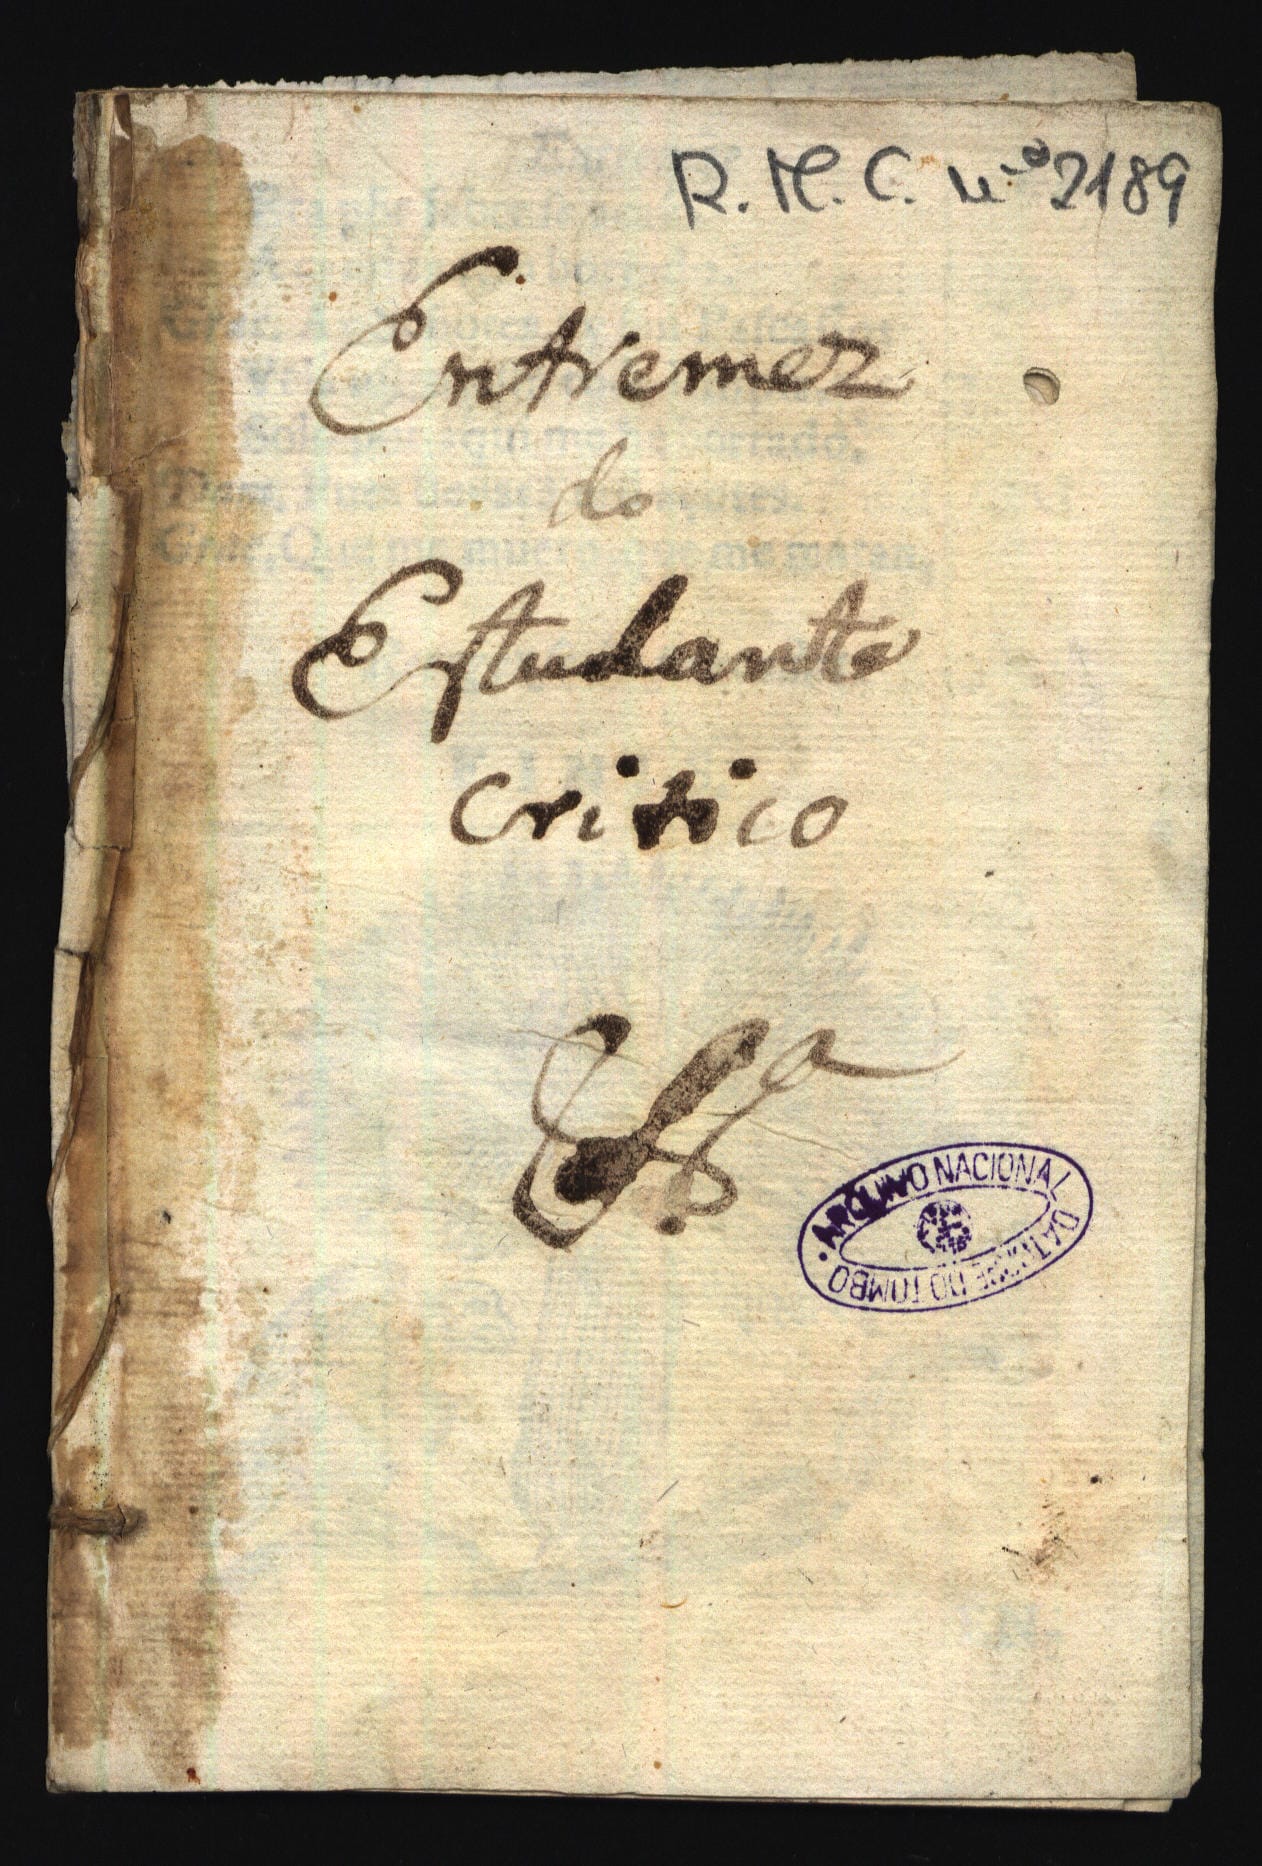 R. M. C. n.º 2189
Entremez
do
Estudante
critico
ARQUIVO NACIONAL DA TORRE DO TOMBO